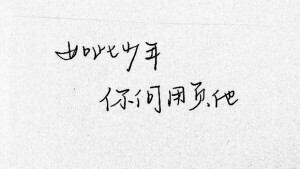 如此少年
你们用负他